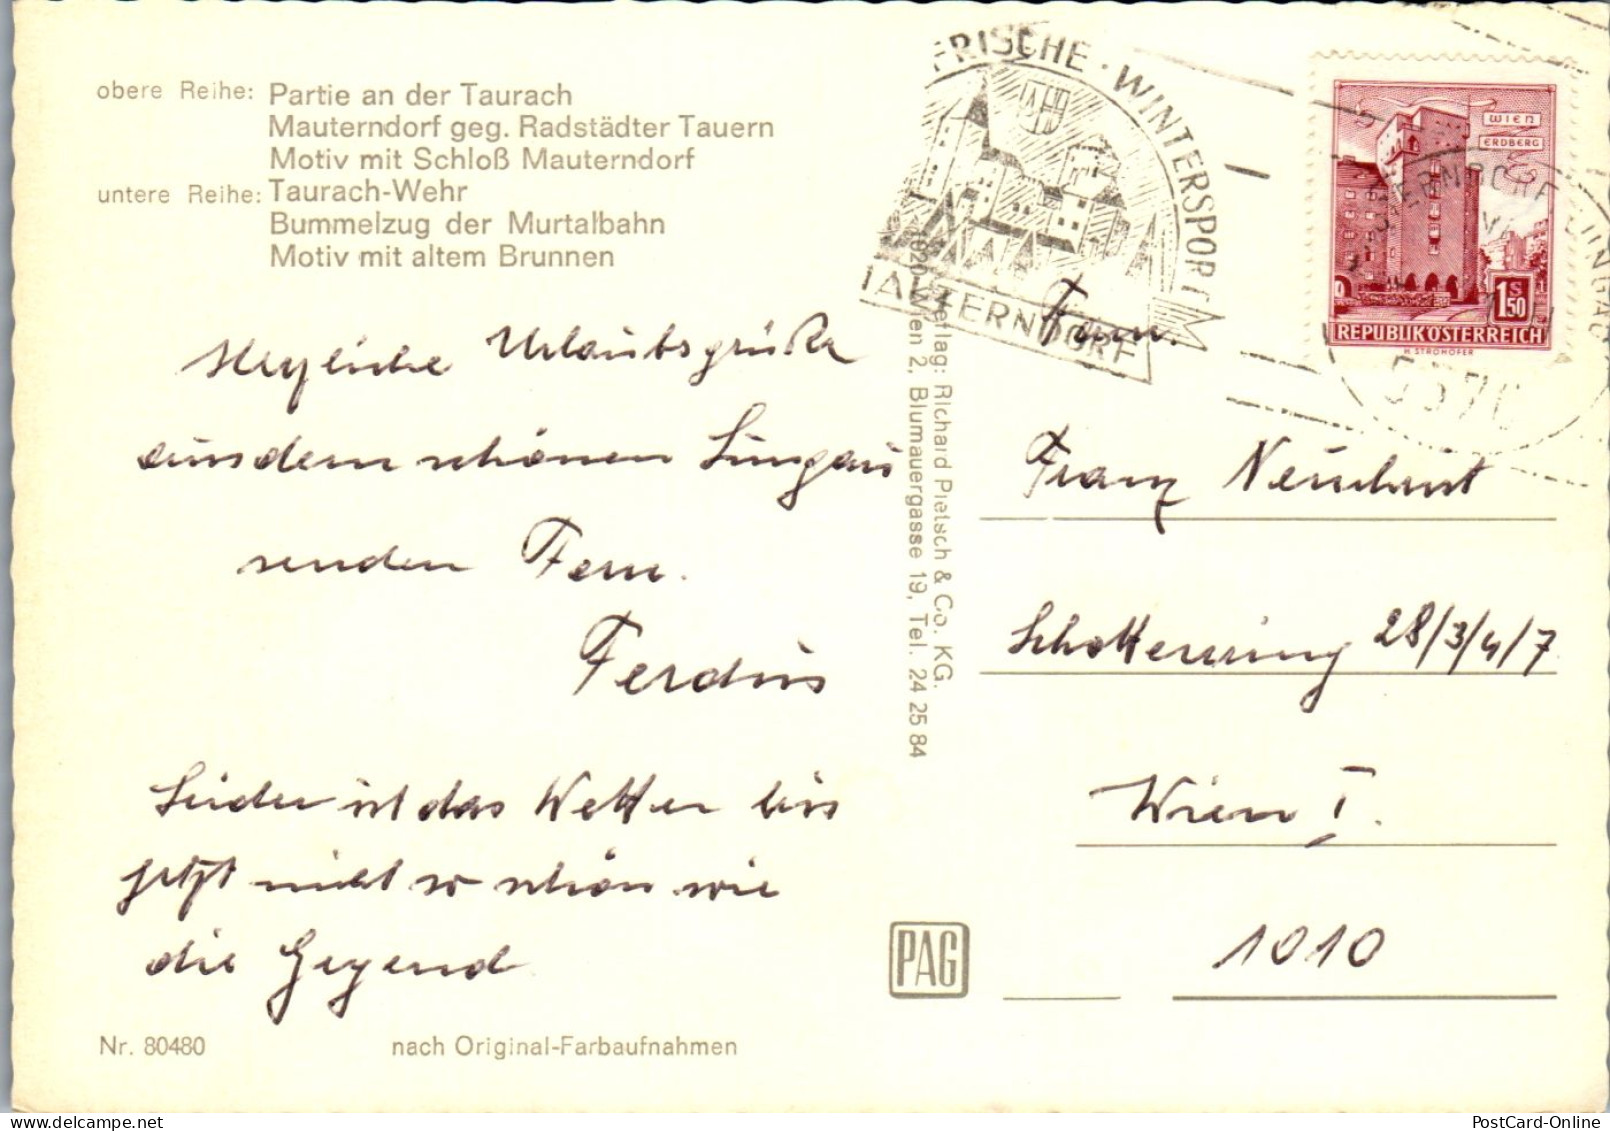 obere Reihe: Partie an der Taurach
Mauterndorf geg. Radstädter Tauern
Motiv mit Schloß Mauterndorf
untere Reihe: Taurach-Wehr
Bummelzug der Murtalbahn
Motiv mit altem Brunnen
Herzliche Urlaubsgrüße
aus dem schönen Lungau
senden Fam.
Ferdus
Leider ist das Wetter bis
jetzt nicht so schön wie
die Gegend
Nr. 80480 nach Original-Farbaufnahmen
Verlag: Richard Pietsch & Co. KG.
1020 Wien 2, Blumauergasse 19, Tel. 24 25 84
PAG
FRISCHE · WINTERSPORT
MAUTERNDORF
WIEN
ERDBERG
1 S 50
REPUBLIK ÖSTERREICH
H. STROHOFER
5570
Fam.
Franz
Schottenring 28/3/4/7
Wien I.
1010
PostCard-Online